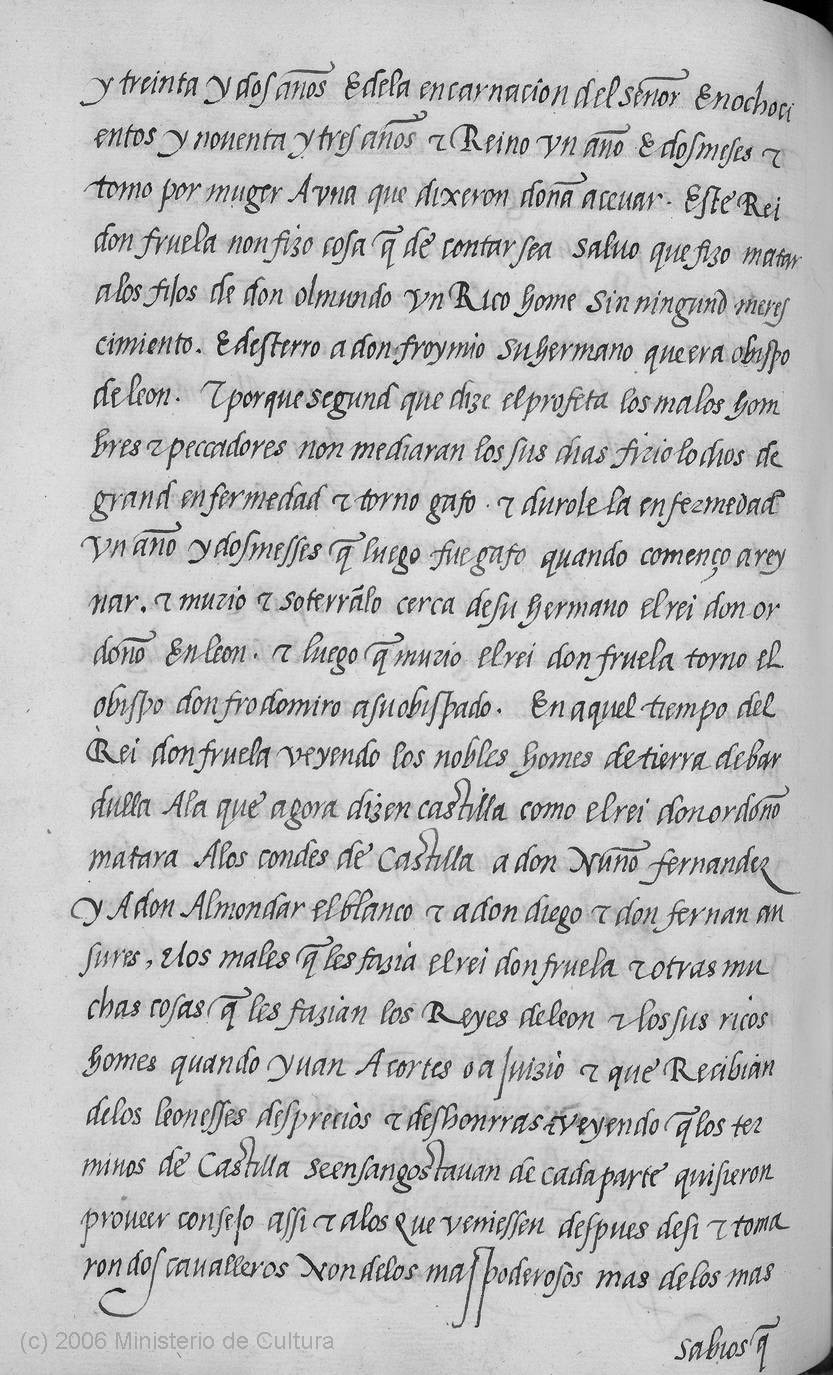 y treinta y dos años E dela encarnaçion del señor En ochoci
entos y noventa y tres años τ Reino vn año E dos meses τ
tomo por muger A vna que dixeron doña accuar. Este Rei
don fruela non fizo cosa q̃ de contar sea salvo que fizo matar
alos fijos de don olmundo vn Rico home sin ningund̃ meres
cimiento. E desterro a don froymio su hermano que era obispo
de leon. τ porque segund que dize el profeta los malos hom
bres τ peccadores non mediaran los sus dias fizio lo dios de
grand enfermedad τ torno gafo. τ durole la enfermedad
vn año y dos messes q̃ luego fue gafo quando començo a rey
nar. τ murio τ soterrãlo cerca de su hermano el rei don or
doño En leon. τ luego q̃ murio el rei don fruela torno el
obispo don frodomiro a su obispado. En aquel tiempo del
Rei don fruela veyendo los nobles homes de tierra de bar
dulla Ala que agora dizen castilla como el rei don ordoño
matara Alos condes de Castilla a don Nuño fernandez
y A don Almondar el blanco τ a don diego τ don fernan an
sures, τ los males q̃ les fazia el rei don fruela τ otras mu
chas cosas q̃ les fazian los Reyes de leon τ los sus ricos
homes quando yuan A cortes o a juizio τ que Recibian
delos leonesses desprecios τ deshonrras τ veyendo q̃ los ter
minos de Castilla se ensangostauan de cada parte quisieron
proveer consejo assi τ a los que veniessen despues desi τ toma
ron dos cavalleros Non delos mas poderosos mas de los mas
sabios q̃
(c) 2006 Ministerio de Cultura